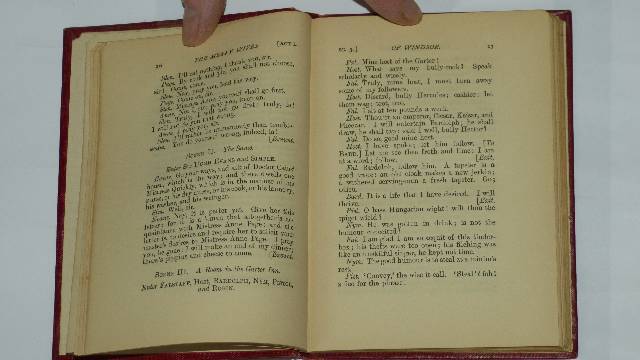 THE MERRY WIVES
[ACT I.
Slen. I'll eat nothing, I thank you, sir.
Page. By cock and pie, you shall not choose,
sir! come, come.
Slen. Nay, pray you, lead the way.
Page. Come on, sir.
Slen. Mistress Anne, yourself shall go first.
Anne. Not I, sir; pray you, keep on.
Slen. Truly, I will not go first; truly, la!
I will not do you that wrong.
Anne. I pray you, sir.
Slen. I'll rather be unmannerly than trouble-
some. You do yourself wrong, indeed, la!
[Exeunt.
SCENE II. The Same.
Enter SIR HUGH EVANS and SIMPLE.
Evans. Go your ways, and ask of Doctor Caius'
house, which is the way: and there dwells one
Mistress Quickly, which is in the manner of his
nurse, or his dry nurse, or his cook, or his laundry,
his washer, and his wringer.
Sim. Well, sir.
Evans. Nay, it is petter yet. Give her this
letter; for it is a 'oman that altogether's
quaintance with Mistress Anne Page: and the
letter is, to desire and require her to solicit your
master's desires to Mistress Anne Page. I pray
you, be gone: I will make an end of my dinner;
there's pippins and cheese to come.
[Exeunt.
SCENE III. A Room in the Garter Inn.
Enter FALSTAFF, HOST, BARDOLPH, NYM, PISTOL,
and ROBIN.
SC. 3.]
OF WINDSOR.
13
Fal. Mine host of the Garter!
Host. What says my bully-rook? Speak
scholarly and wisely.
Fal. Truly, mine host, I must turn away
some of my followers.
Host. Discard, bully Hercules; cashier: let
them wag; trot, trot.
Fal. I sit at ten pounds a week.
Host. Thou'rt an emperor, Cæsar, Keisar, and
Pheezar. I will entertain Bardolph; he shall
draw, he shall tap: said I well, bully Hector?
Fal. Do so, good mine host.
Host. I have spoke; let him follow. [To
BARD.] Let me see thee froth and lime: I am
at a word; follow.
[Exit.
Fal. Bardolph, follow him. A tapster is a
good trade: an old cloak makes a new jerkin;
a withered serving-man a fresh tapster. Go;
adieu.
Bard. It is a life that I have desired. I will
thrive.
[Exit.
Pist. O base Hungarian wight! wilt thou the
spigot wield?
Nym. He was gotten in drink: is not the
humour conceited?
Fal. I am glad I am so acquit of this tinder-
box; his thefts were too open; his filching was
like an unskilful singer, he kept not time.
Nym. The good humour is to steal at a minim's
rest.
Pist. 'Convey,' the wise it call. 'Steal!' foh!
a fico for the phrase.